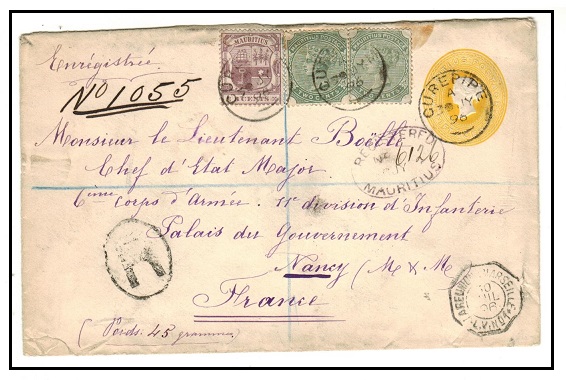 Enrégistrée
No 1055
MAURITIUS
CENTS
CUREPIPE
A
96
6126
MAURITIUS
Monsieur le Lieutenant Boëlle
Chef d'Etat Major
6ème corps d'Armée. 11e division d'Infanterie
Palais du Gouvernement
Nancy (M & M
France
(Poids: 45 grammes)
R
LA REUNION A MARSEILLE
10
JUIL
96
L.V. No 4